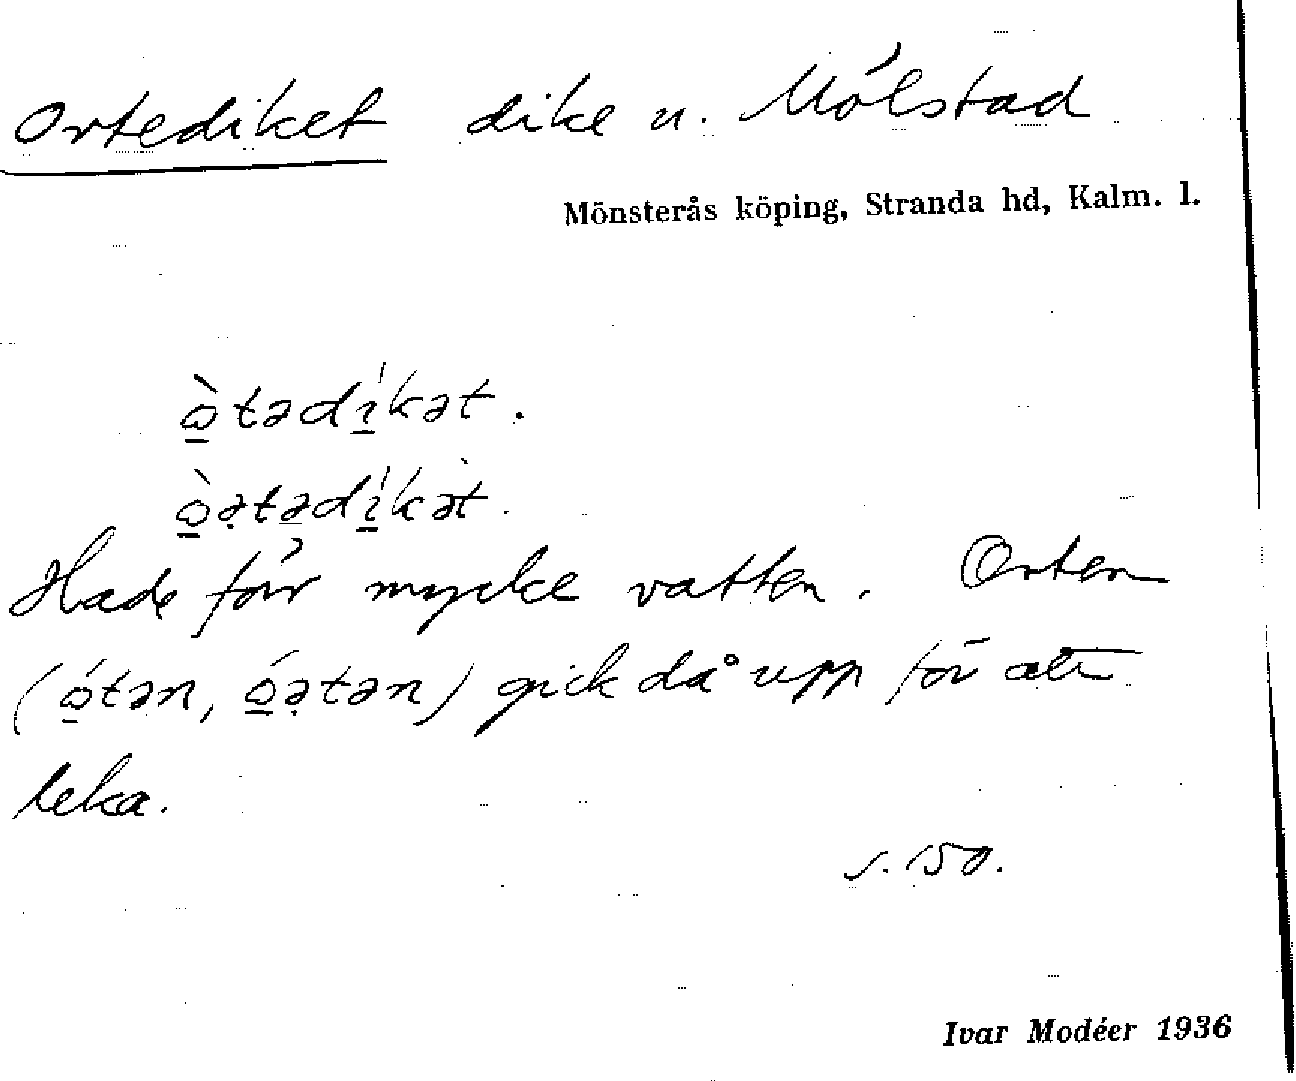 Ortediket dike n. Mölstad
Mönsterås köping, Stranda hd, Kalm. l.
ò̱tədı̱́kət.
ò̱ə̣tədı̱́kət.
Hade förr mycke vatten. Orten
(ó̱tən, ó̱ə̣tən) gick då upp för att
leka.
s. 150.
Ivar Modéer 1936